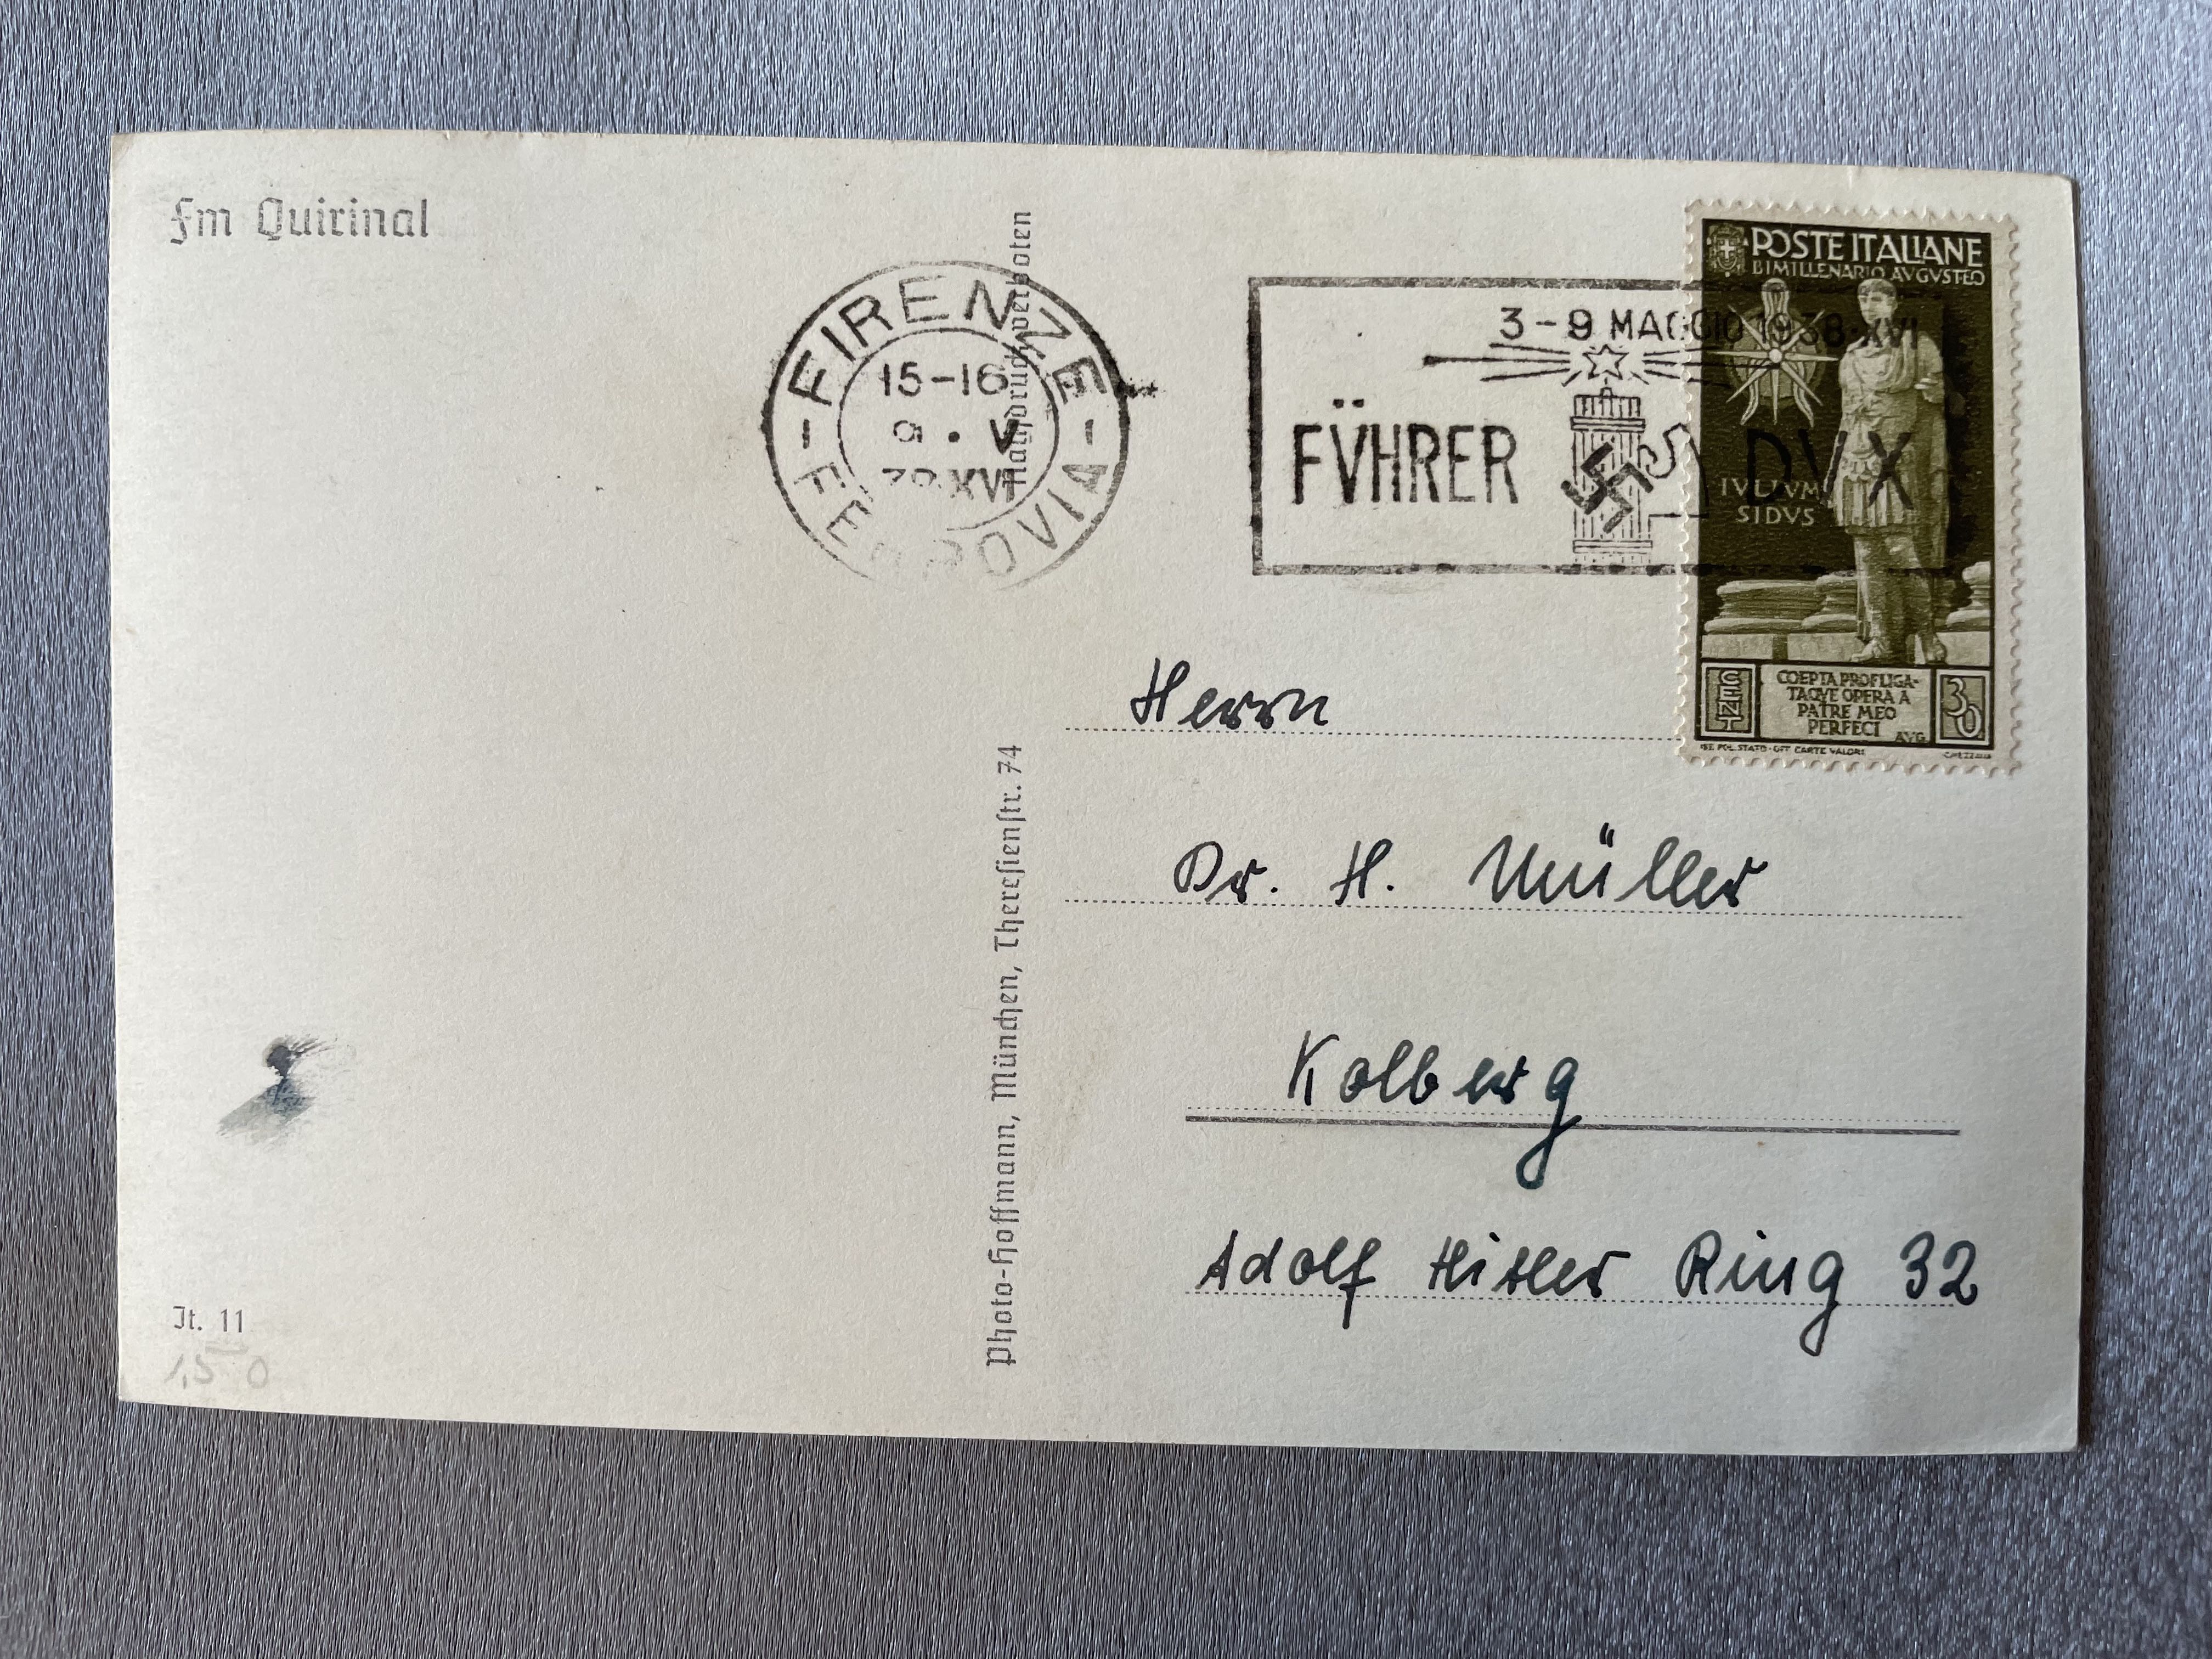 Im Quirinal
Nachdruck verboten
FIRENZE
15-16
9 · V
38 XVI
FERROVIA
3-9 MAGGIO 1938·XVI
FVHRER DVX
POSTE ITALIANE
BIMILLENARIO AVGVSTEO
IVLIVM
SIDVS
CENT
COEPTA PROFLIGA-
TAQVE OPERA A
PATRE MEO
PERFECI
AVG.
30
IST. POL. STATO · OFF. CARTE VALORI
Herrn
Dr. H. Müller
Kolberg
Adolf Hitler Ring 32
Photo-Hoffmann, München, Theresienstr. 74
It. 11
1,50